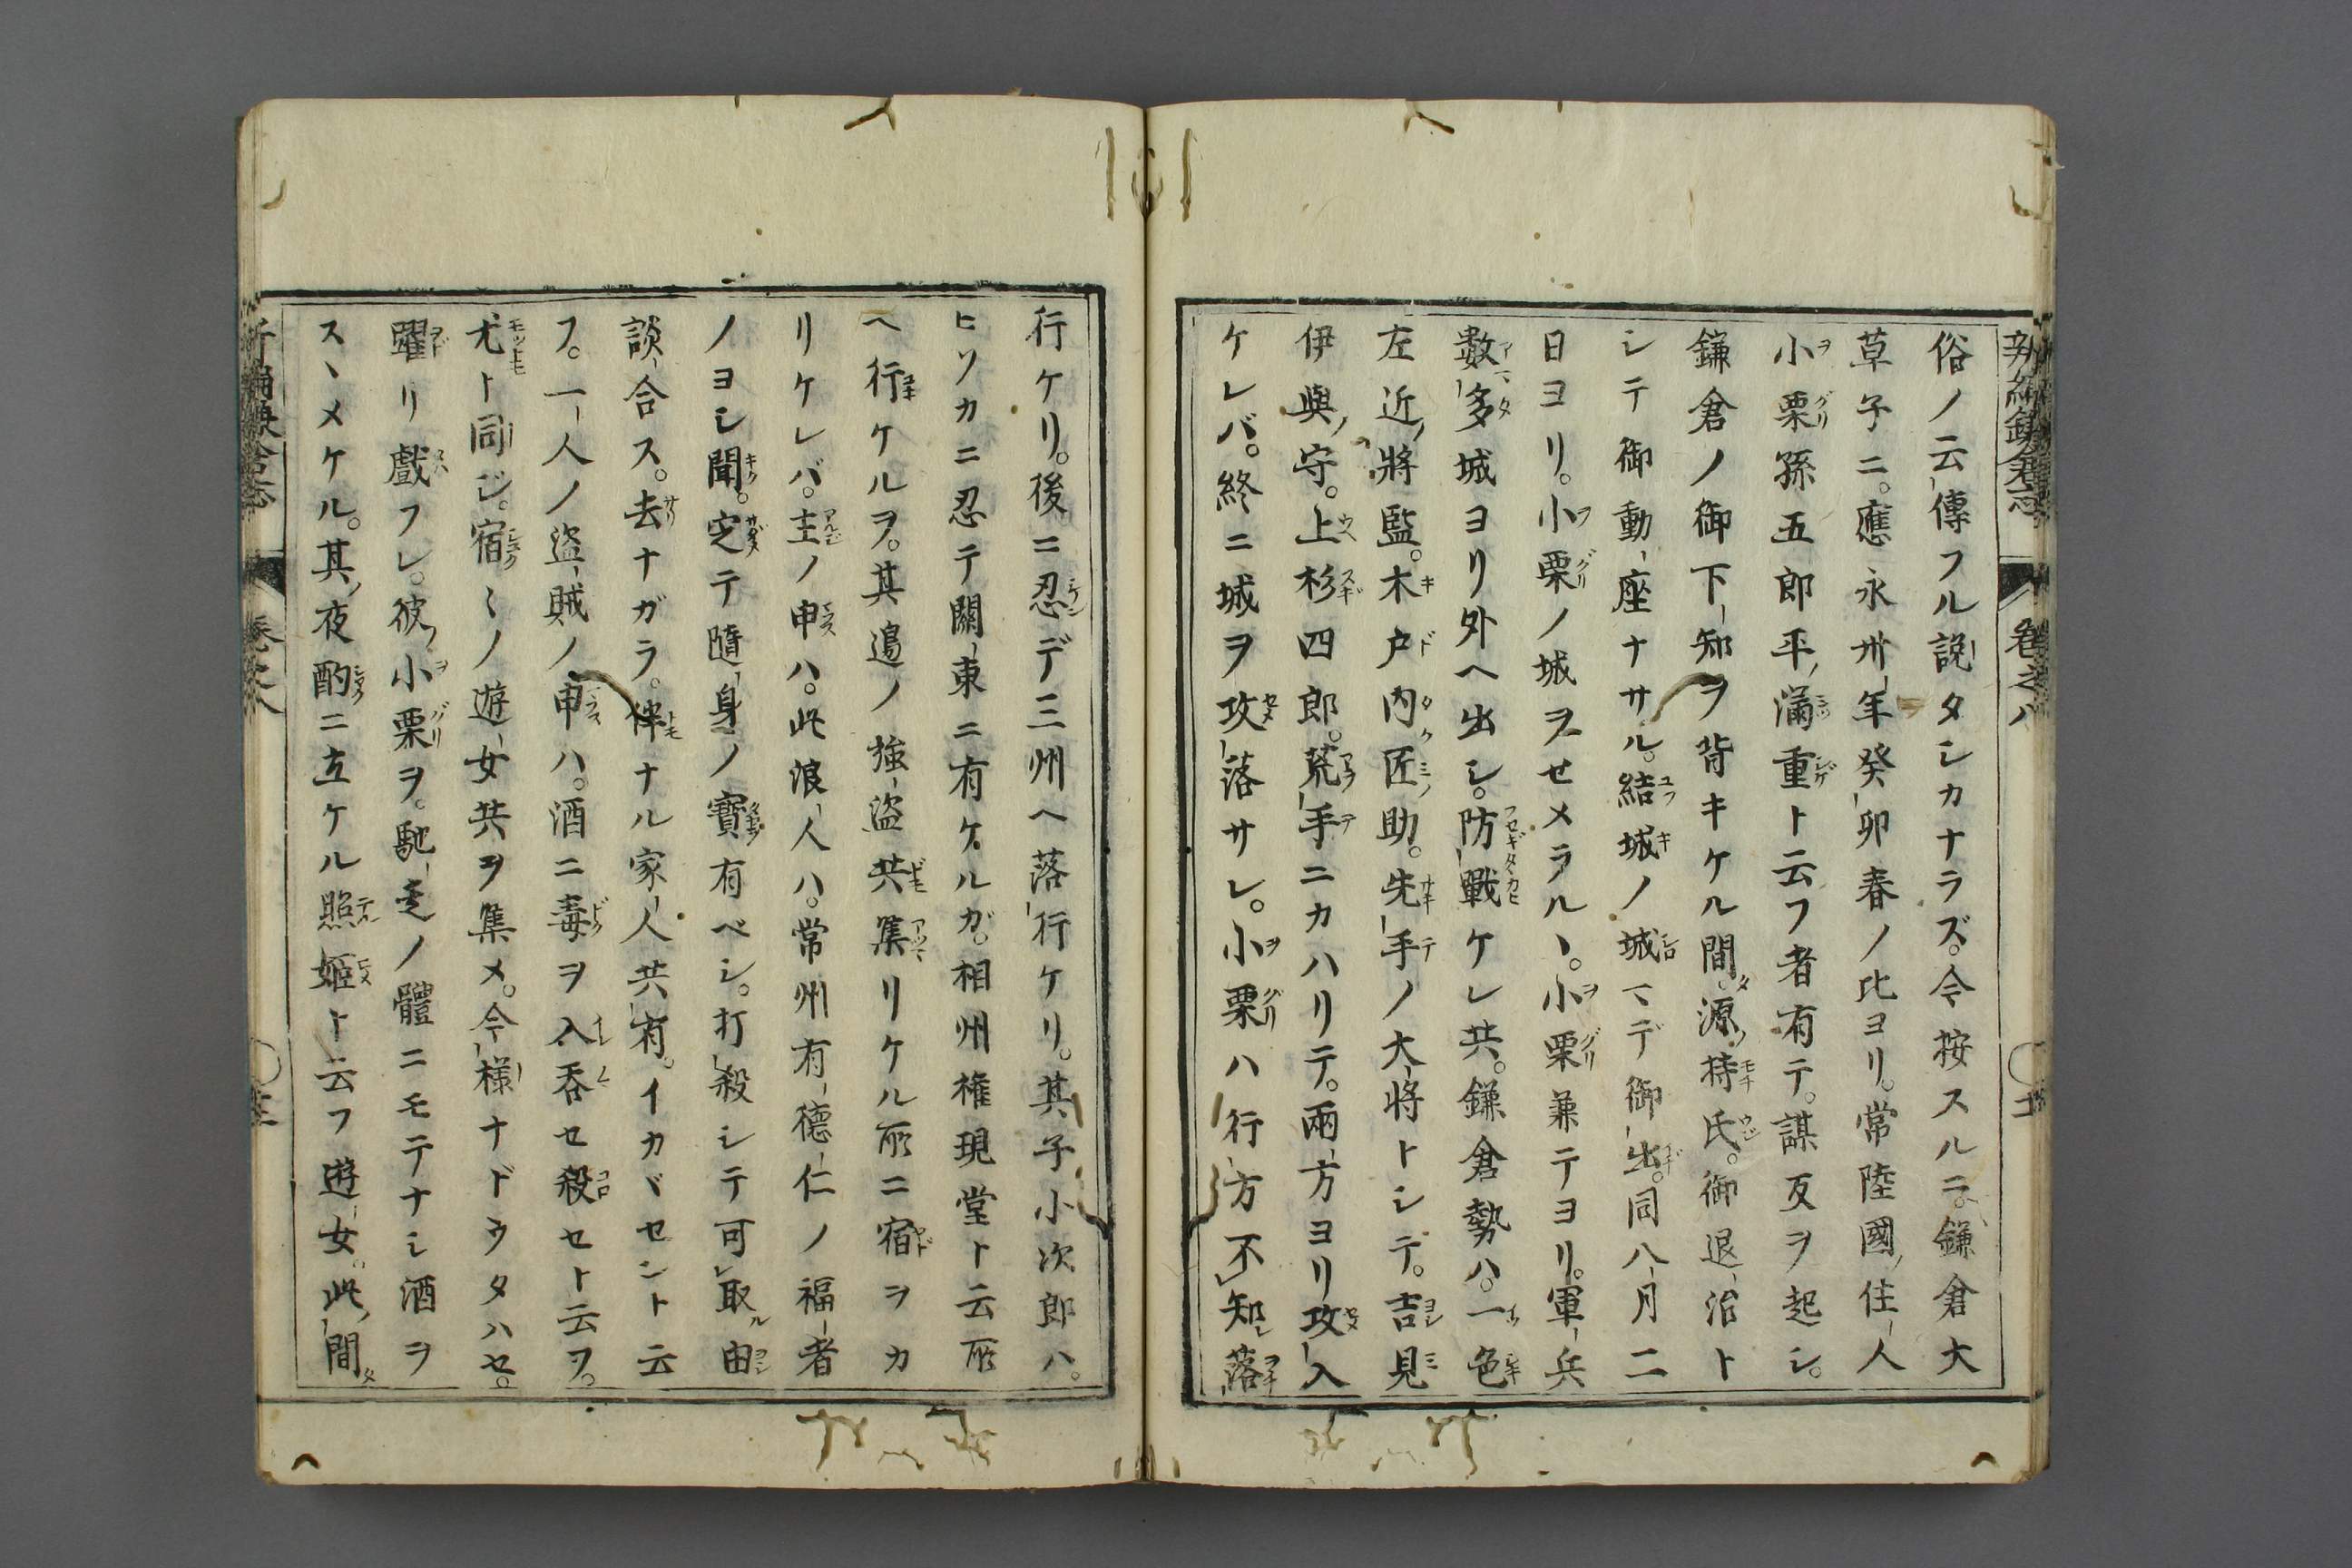 新編鎌倉志 卷之八
俗ノ云傳フル說タシカナラズ。今按スルニ。鎌倉大
草子ニ。應永卅年癸卯春ノ比ヨリ。常陸國ノ住人
小栗孫五郎平ノ滿重ト云フ者有テ。謀反ヲ起シ。
鎌倉ノ御下知ヲ背キケル間。源ノ持氏。御退治ト
シテ御動座ナサル。結城ノ城マデ御出。同八月二
日ヨリ。小栗ノ城ヲセメラルヽ。小栗兼テヨリ。軍兵
數多城ヨリ外ヘ出シ。防戰ケレ共。鎌倉勢ハ。一色
左近ノ將監。木戸内匠助。先手ノ大將トシテ。吉見
伊與ノ守。上杉四郎。荒手ニカハリテ。兩方ヨリ攻入
ケレバ。終ニ城ヲ攻落サレ。小栗ハ行方不知落
行ケリ。後ニ忍デ三州ヘ落行ケリ。其子小次郎ハ。
ヒソカニ忍テ關東ニ有ケルガ。相州權現堂ト云所
ヘ行ケルヲ。其邊ノ強盜共集リケル所ニ宿ヲカ
リケレバ。主ノ申ハ。此浪人ハ。常州有德仁ノ福者
ノヨシ聞。定テ隨身ノ寶有ベシ。打殺シテ可取由
談合ス。去ナガラ。伴ナル家人共有。イカヾセント云
フ。一人ノ盜賊ノ申ハ。酒ニ毒ヲ入呑セ殺セト云フ。
尤ト同ジ。宿〻ノ遊女共ヲ集メ。今樣ナドウタハセ。
躍リ戲フレ。彼ノ小栗ヲ。馳走ノ體ニモテナシ酒ヲ
スヽメケル。其ノ夜酌ニ立ケル照姫ト云フ遊女。此ノ間